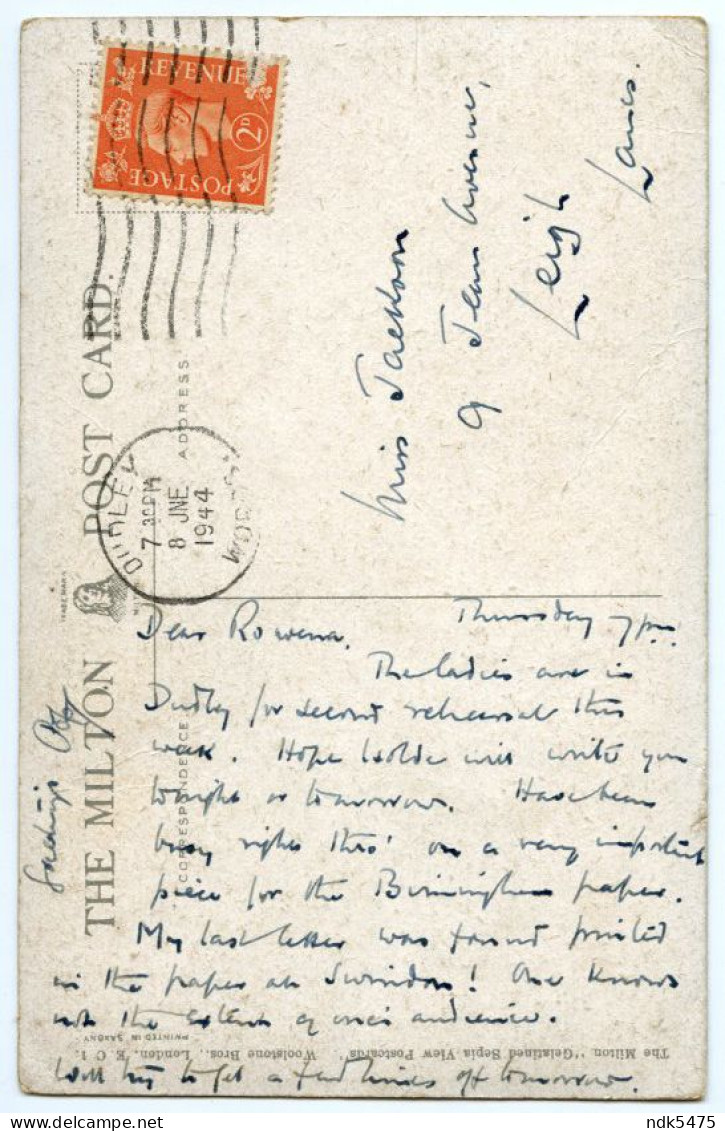 REVENUE
2D
POSTAGE
THE MILTON POST CARD.
TRADE MARK
ADDRESS
CORRESPONDENCE
DUDLEY
7 30 PM
8 JNE
1944
WORCS
Miss Jackson
9 Jean Avenue,
Leigh
Lancs.
Thursday 7pm.
Dear Rowena.
The ladies are in
Dudley for second rehearsal this
week. Hope Isolde will write you
tonight or tomorrow. Have been
busy right thro' on a very important
piece for the Birmingham paper.
My last letter was found printed
in the paper at Swindon! One knows
not the extent of one's audience.
Will try to get a few lines off tomorrow.
Greetings
PRINTED IN SAXONY
The Milton "Gelatined Sepia View Postcards" Woolstone Bros., London, E.C 1.
ndk5475